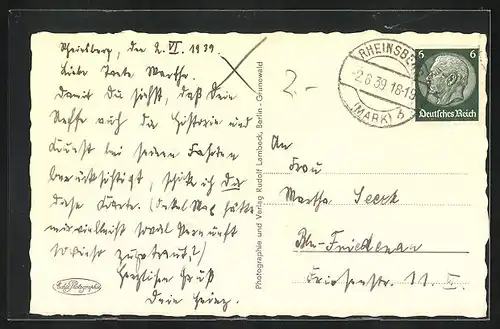 Rheinsberg, den 2. VI. 1939.
Liebe Tante Martha.
Damit Du siehst, daß Dein
Neffe auch die Historie und
Kunst bei seinen Fahrten
berücksichtigt, schicke ich Dir
diese Karte. (Onkel Max hätte
mir vielleicht soviel Vernunft
sowieso zugetraut?)
Herzlichen Gruß
Dein Heinz.
Echte Photographie
Photographie und Verlag Rudolf Lambeck, Berlin-Grunewald
2.-
RHEINSBERG
-2.8.39.18-19
(MARK)
6 6
Deutsches Reich
An
Frau
Martha Seeck
Bln-Friedenau
11. II.